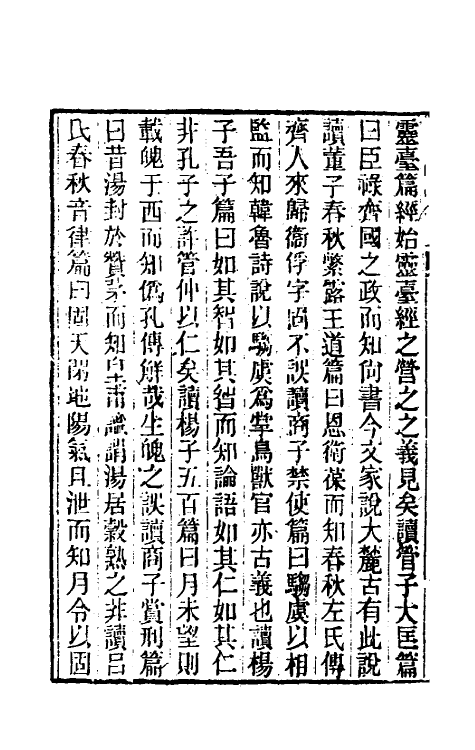 靈臺篇經始靈臺經之營之之義見矣讀管子大匡篇
曰臣祿齊國之政而知尙書今文家說大麓古有此說
讀董子春秋繁露王道篇曰恩衛葆而知春秋左氏傳
齊人來歸衞俘字固不誤讀商子禁使篇曰騶虞以相
監而知韓魯詩說以騶虞爲掌鳥獸官亦古義也讀楊
子吾子篇曰如其智如其智而知論語如其仁如其仁
非孔子之許管仲以仁矣讀楊子五百篇曰月未望則
載魄于西而知僞孔傳解哉生魄之誤讀商子賞刑篇
曰昔湯封於贊茅而知皇甫謐謂湯居穀熟之非讀呂
氏春秋音律篇曰固天閉地陽氣且泄而知月令以固